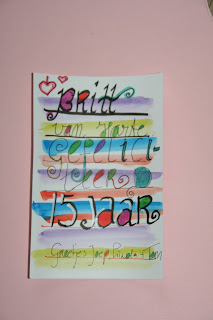 Britt
van harte
Gefelici-
teerd
15 JAAR
Groetjes Joep